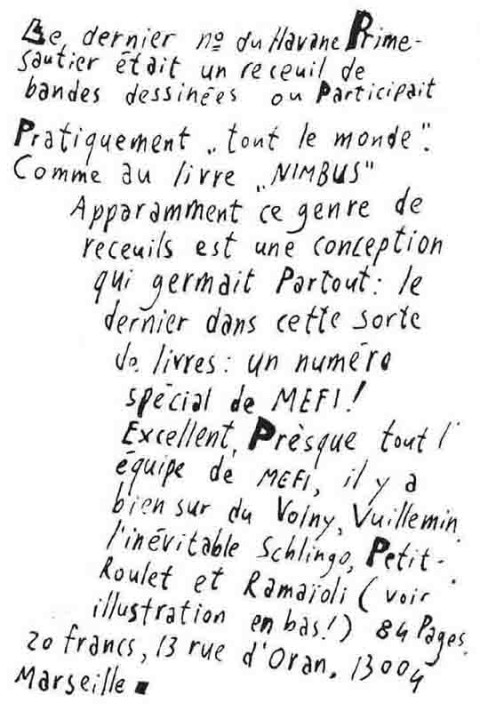 Le dernier nº du Havane Prime-
sautier était un receuil de
bandes dessinées ou Participait
Pratiquement „tout le monde".
Comme au livre „NIMBUS"
Apparamment ce genre de
receuils est une conception
qui germait Partout: le
dernier dans cette sorte
de livres: un numéro
spécial de MEFI!
Excellent, Prèsque tout l'
équipe de MEFI, il y a
bien sur du Volny, Vuillemin
l'inévitable Schlingo, Petit-
Roulet et Ramaïoli (voir
illustration en bas!) 84 Pages.
20 francs, 13 rue d'Oran, 13004
Marseille ■